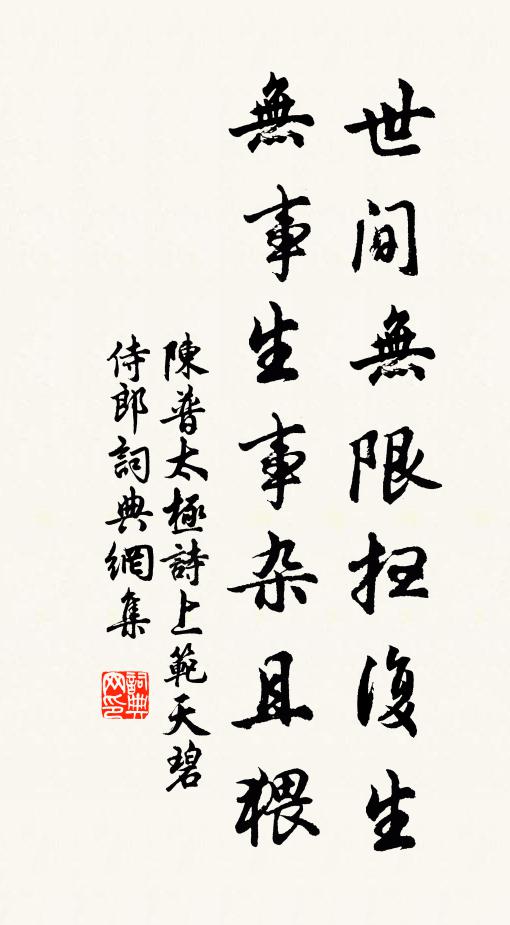 世间無限枉復生
無事生事杂且猥
陳普太極詩上範天碧
侍郎詞典網集
詞典
网印